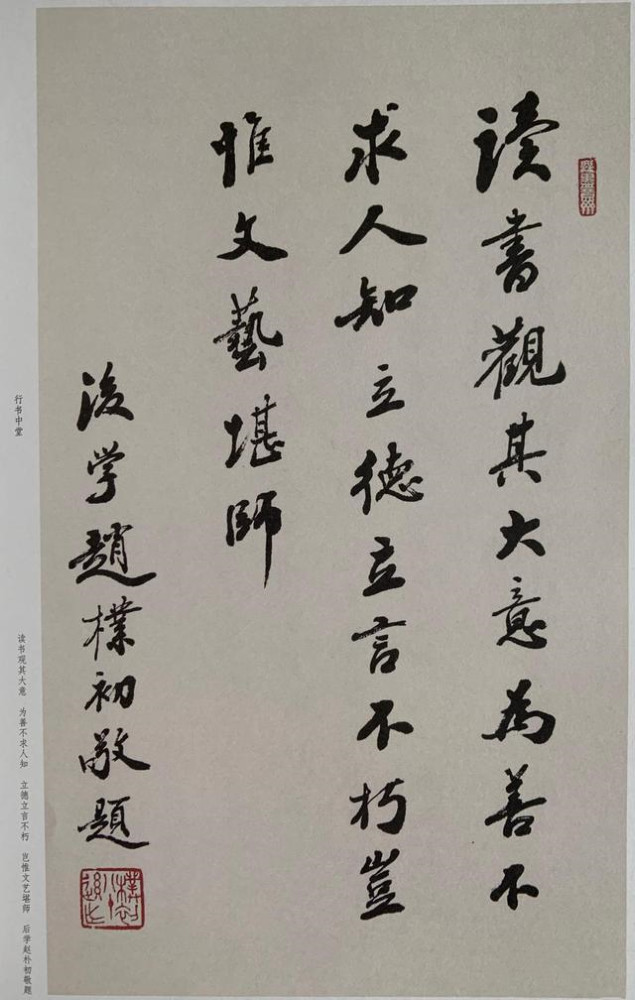 读書觀其大意為善不
求人知立德立言不朽豈
惟文藝堪師
後学趙樸初敬題
行书中堂
读书观其大意　为善不求人知　立德立言不朽　岂惟文艺堪师　后学赵朴初敬题